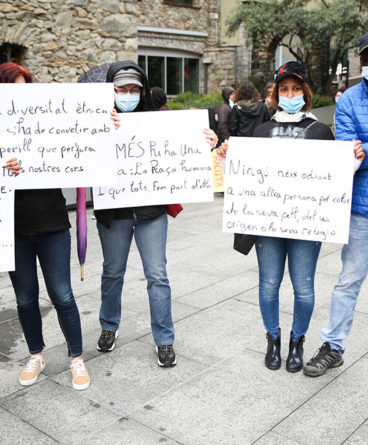 a diversitat ètnica
s'ha de convertir amb
perill que perjura
als nostres cors
MÉS Hi ha Una
a: La Raça humana
I que tots Fem part d'ella
Ningú neix odiant
a una altra persona pel color
de la seva pell, del seu
origen o la seva religió.